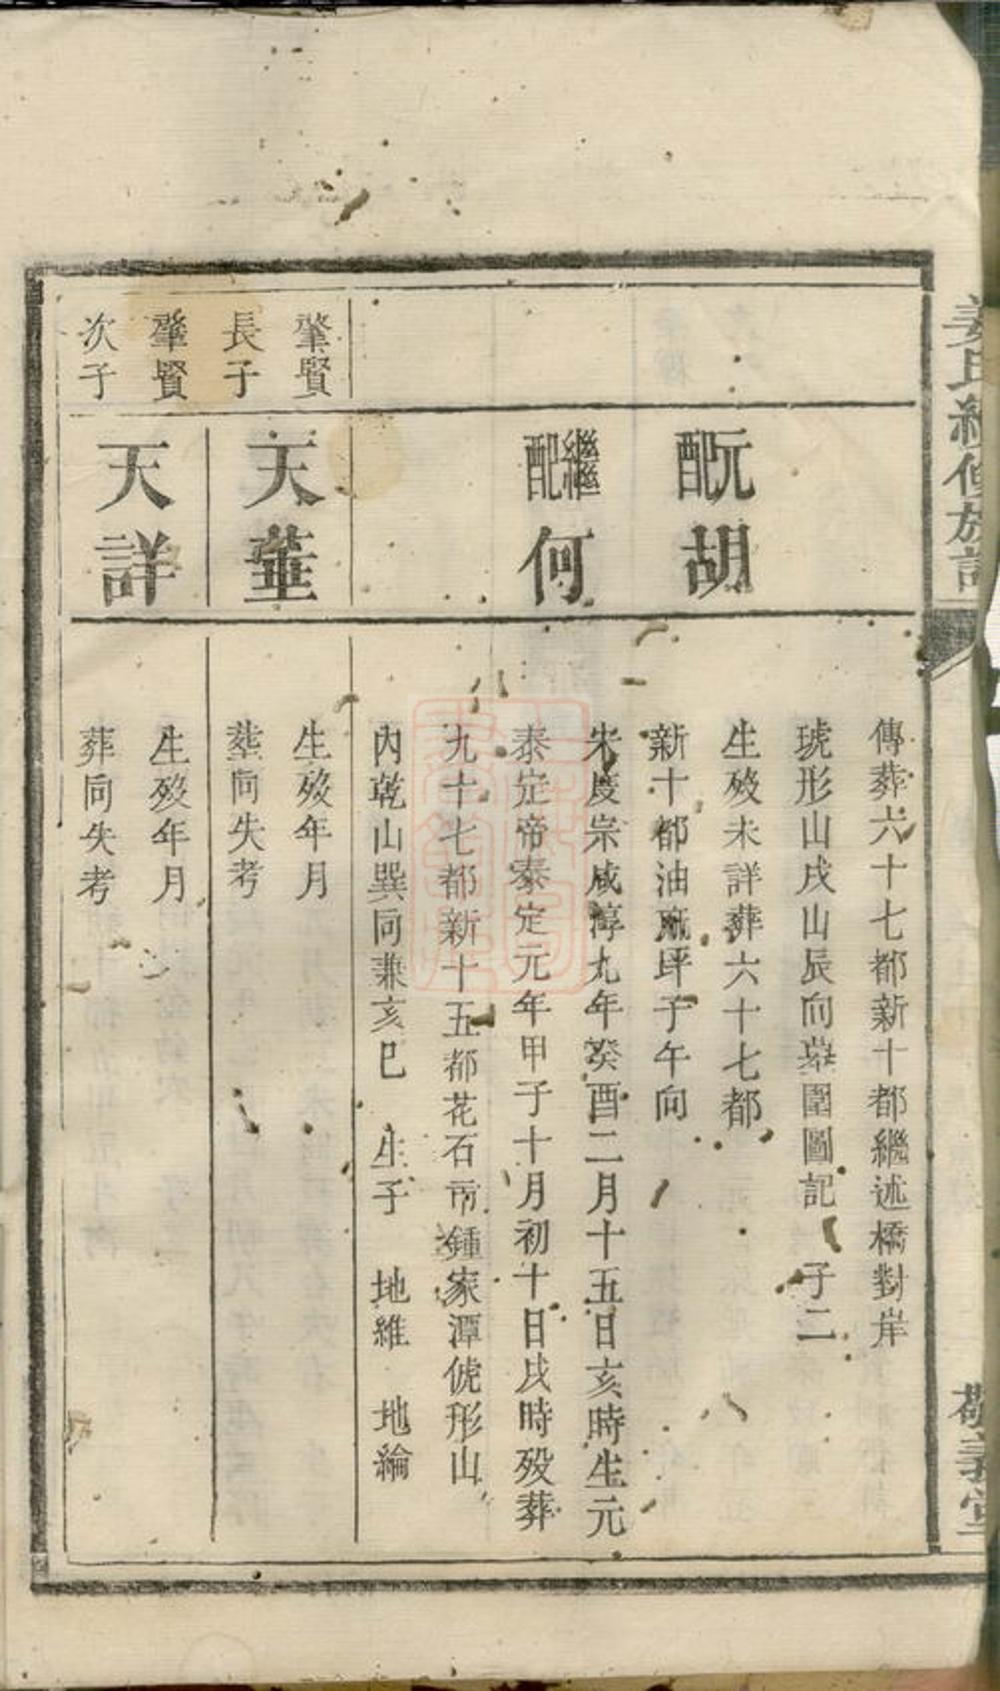 姜氏續修族譜
敬義堂
傳葬六十七都新十都繼述橋對岸
琥形山戌山辰向墓圍圖記　子二
元配
胡
生歿未詳葬六十七都
新十都油麻坪子午向
繼配
何
宋度宗咸淳九年癸酉二月十五日亥時生元
泰定帝泰定元年甲子十月初十日戌時歿葬
九十七都新十五都花石市鍾家潭俿形山
內乾山巽向兼亥巳　生子　地維　地綸
肇賢
長子
天菫
生歿年月
塟向失考
肇賢
次子
天詳
生歿年月
葬向失考